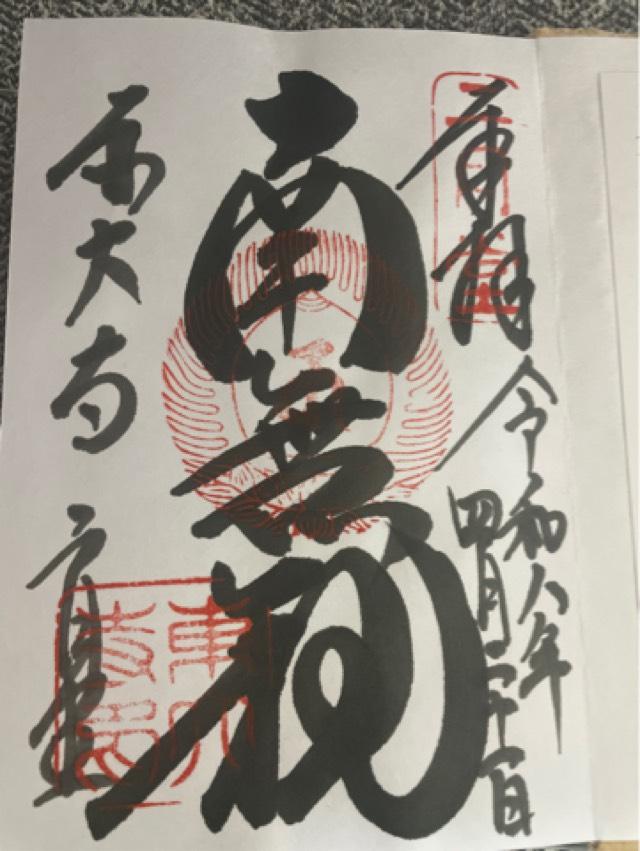 奉拝
二月堂
令和八年
四月二十一日
南無観
東大寺 二月堂
東大寺印